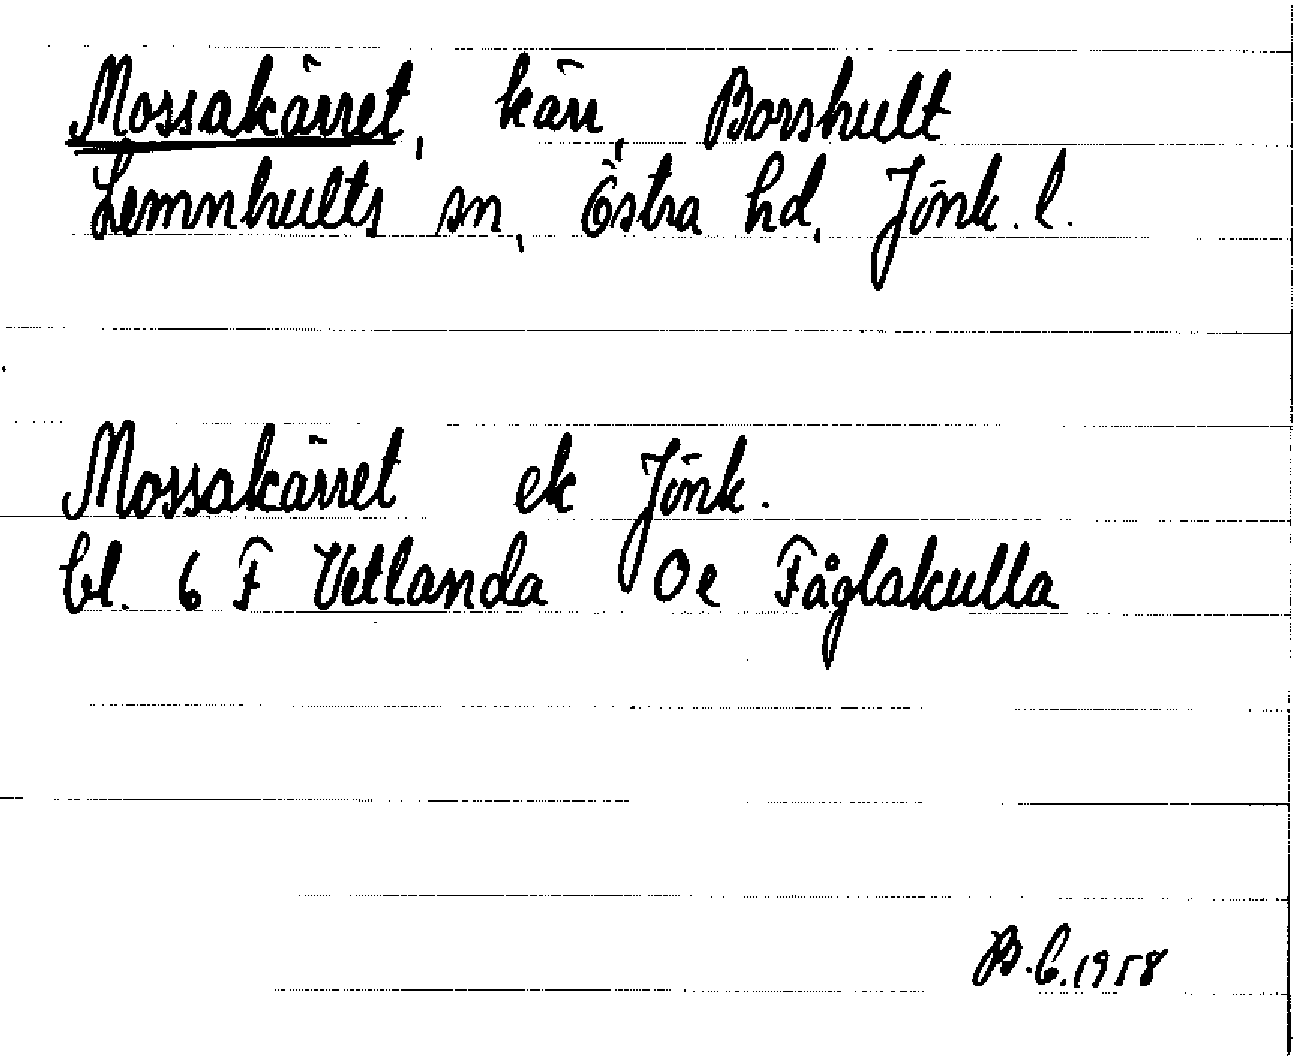 Mossakärret, kärr, Borshult
Lemnhults sn, Östra hd, Jönk. l.
Mossakärret ek Jönk.
bl. 6 F Vetlanda 0e Fåglakulla
B.C. 1958